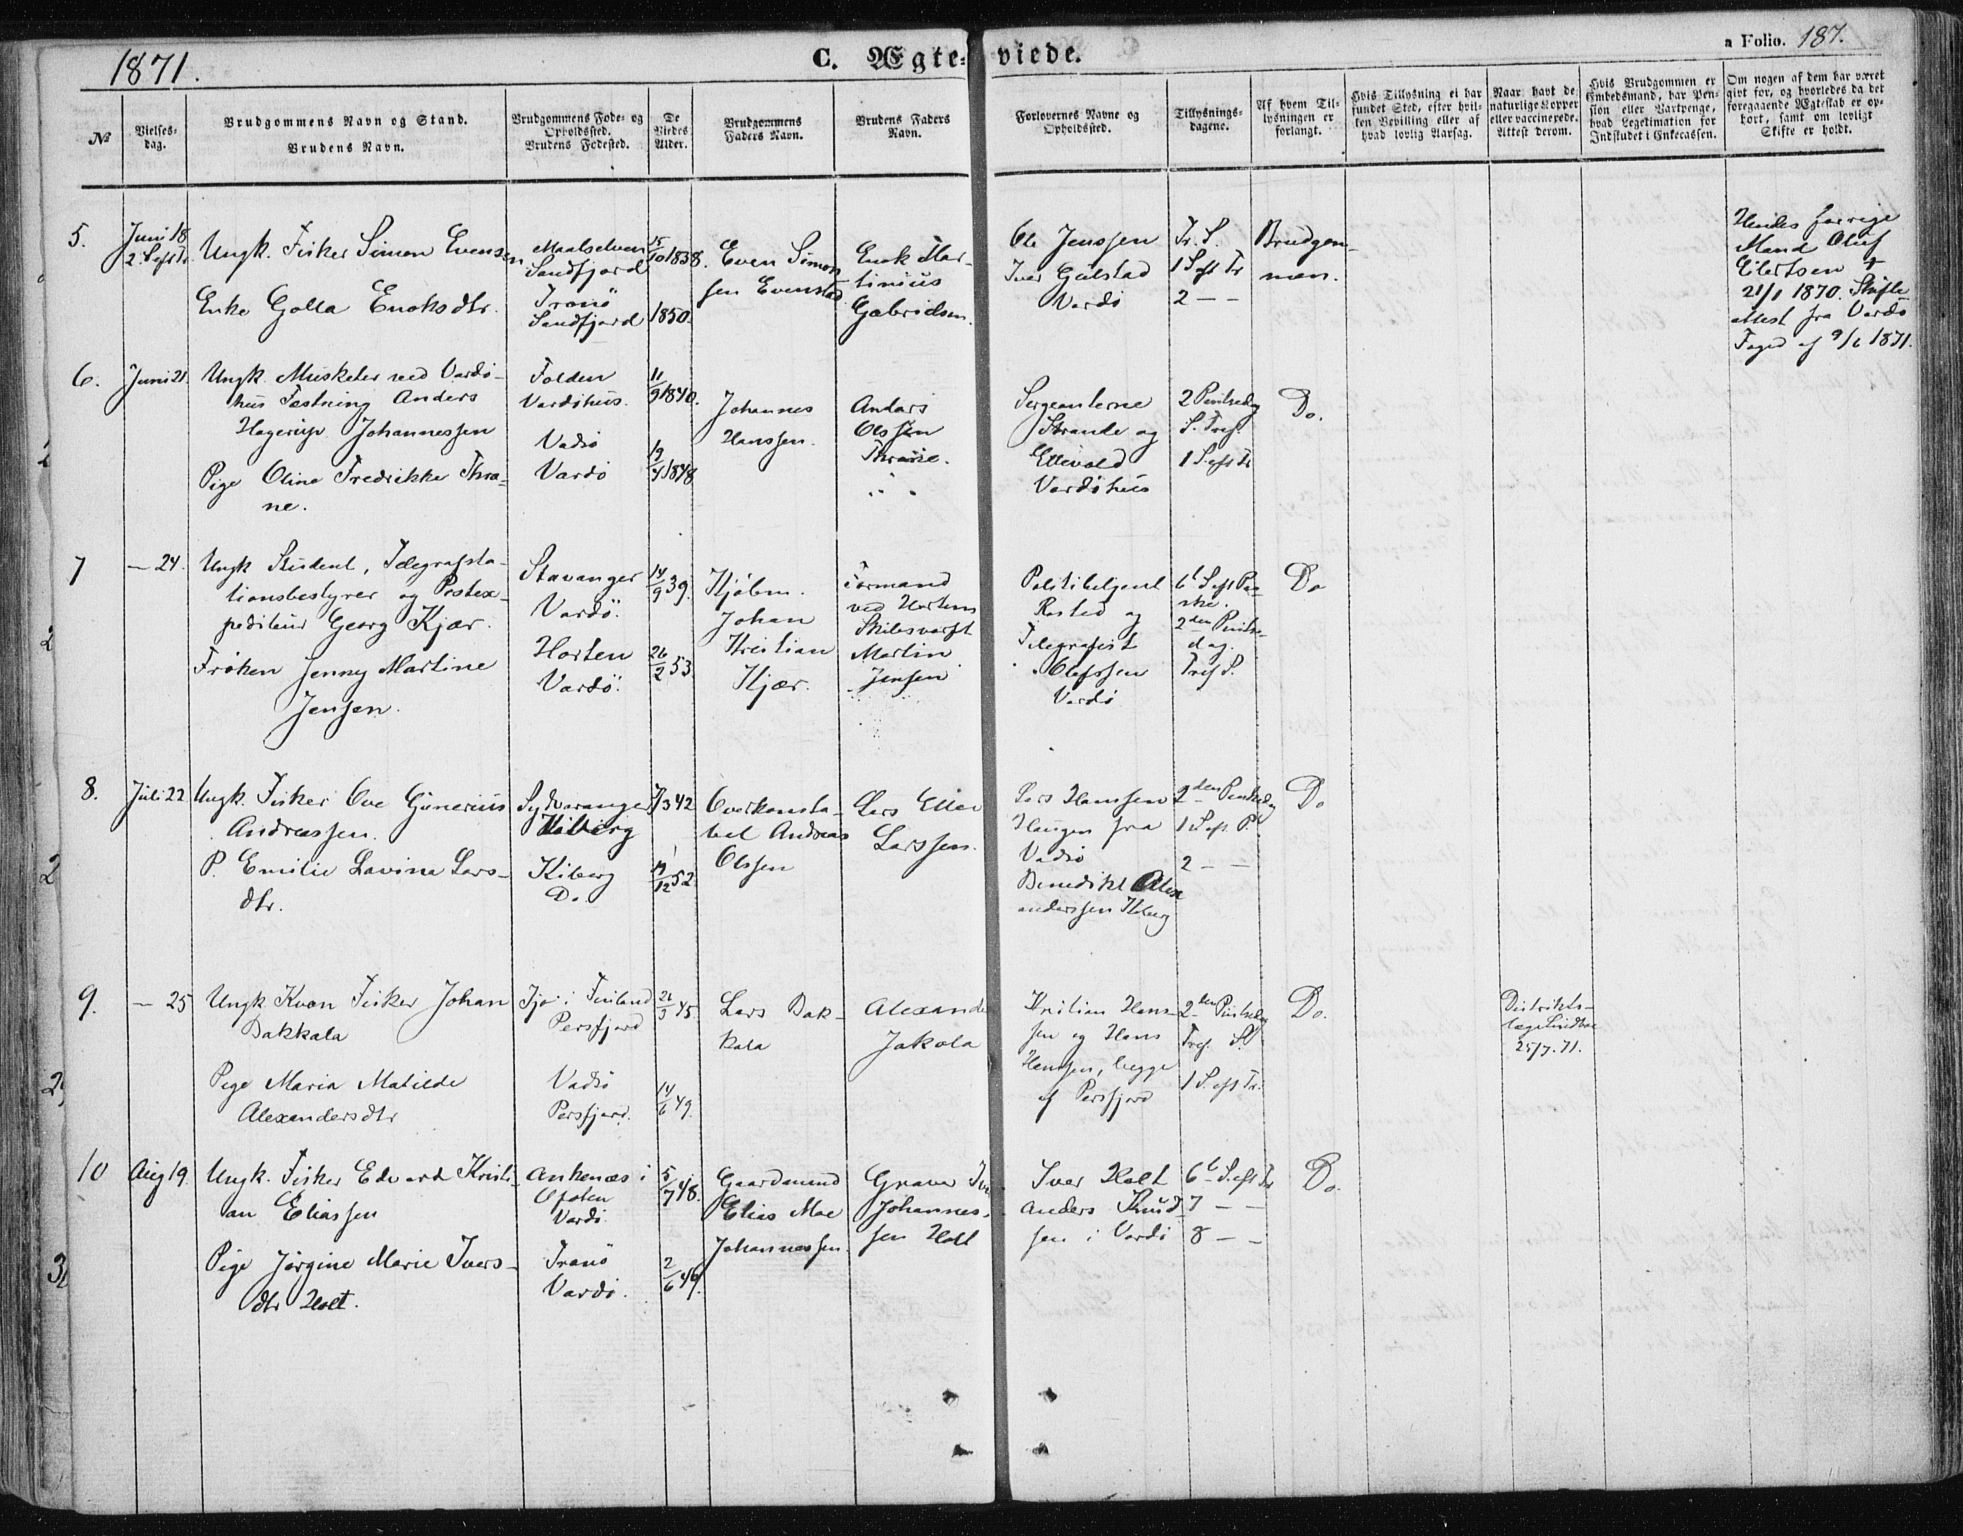 1871.
C. Ægteviede.
a Folio. 187.
№
Vielses-
dag.
Brudgommens Navn og Stand.
Brudens Navn.
Brudgommens Føde- og
Opholdssted.
Brudens Fødested.
De
Viedes
Alder.
Brudgommens
Faders Navn.
Brudens Faders
Navn.
Forlovernes Navne og
Opholdssted.
Tillysnings-
dagene.
Af hvem Til-
lysningen er
forlangt.
Hvis Tillysning ei har
fundet Sted, efter hvil-
ken Bevilling eller af
hvad lovlig Aarsag.
Naar havt de
naturlige Kopper
eller vaccinerede.
Attest derom.
Hvis Brudgommen er
Embedsmand, har Pen-
sion eller Vartpenge,
hvad Legitimation for
Indskudet i Enkecassen.
Om nogen af dem har været
givt før, og hvorledes da det
foregaaende Ægteskab er op-
hørt, samt om lovligt
Skifte er holdt.
5.
Juni 18
2. S eft Tr.
Ungk. Fisker Simon Evensen
Enke Golla Enoksdtr.
Maalselven
Sandfjord
Tranö
Sandfjord
15/10 1838.
1850.
Even Simon-
sen Evenstad
Enok Mar-
tinius
Gabrielsen.
Ole Jenssen
Iver Gulstad
Vardö
Tr. S.
1 S eft Tr
2 — —
Brudgom-
men.
Hendes forrige
Mand Oluf
Eilertsen †
21/1 1870. Skifte
attest fra Vardö
Foged af 9/6 1871.
6.
Juni 21.
Ungk. Musketer ved Vardö-
hus Fæstning Anders
Hagerup Johannessen
Pige Oline Fredrikke Thra-
ne.
Folden
Vardöhus.
Vadsö
Vardö
11/9 1840.
19/4 1848
Johannes
Hanssen.
Anders
Olssen
Thrane.
Sergeanterne
Strande og
Ellevold
Vardöhus
2 Pintsedag
S. Tref.
1 S. eft Tr
Do.
7
— 24.
Ungk Student, Telegrafsta-
tionsbestyrer og Postex-
pediteur Georg Kjær.
Frøken Jenny Martine
Jensen.
Stavanger
Vardö.
Horten
Vardö.
14/9 39.
26/2 53
Kjöbm.
Johan
Kristian
Kjær.
Formand
ved Hortens
Skibsværft
Martin
Jensen
Politibetjent
Rosted og
Telegrafist
Olefssen
Vardö
6t S eft Paa-
ske.
2den Pintse-
dag.
Tref S.
Do
8.
Juli 22
Ungk. Fisker Ove Gunerius
Andreassen.
P. Emilie Lavina Lars-
dtr.
Sydvaranger
Kiberg
Kiberg
Do.
7/3 42
19/12 52.
Overkonsta-
bel Andreas
Olssen
Lars Eller
Larssen.
Lars Hanssen
Haugen fra
Vadsö
Benedikt Alex
anderssen Kiberg
2den Pintsedag
1 S. eft. P.
2 — —
Do
9.
— 25
Ungk Kvæn Fisker Johan
Bakkala
Pige Maria Matilde
Alexandersdtr
Ijo i Finland
Persfjord
Vadsö
Persfjord.
26/3 45.
14/6 49.
Lars Bak-
kala
Alexander
Jakola
Kristian Hans-
sen og Hans
Hanssen, begge
af Persfjord
2den Pintsedag
Tref. S.
1 S. eft Tr.
Do.
Distrikts-
læge
25/7. 71.
10
Aug 19.
Ungk. Fisker Edvard Kristi-
an Eliassen
Pige Jørgine Marie Ivers-
dtr Holt.
Ankenæs i
Ofoten
Vardö.
Tranö
Vardö.
5/7 48.
2/6 46.
Gaardmand
Elias Moe
Johannessen.
Graver Iver
Johannes-
sen Holt
Iver Holt
Anders Knud-
sen i Vardö
6t S. eft Tr
7 — —
8 — —
Do.